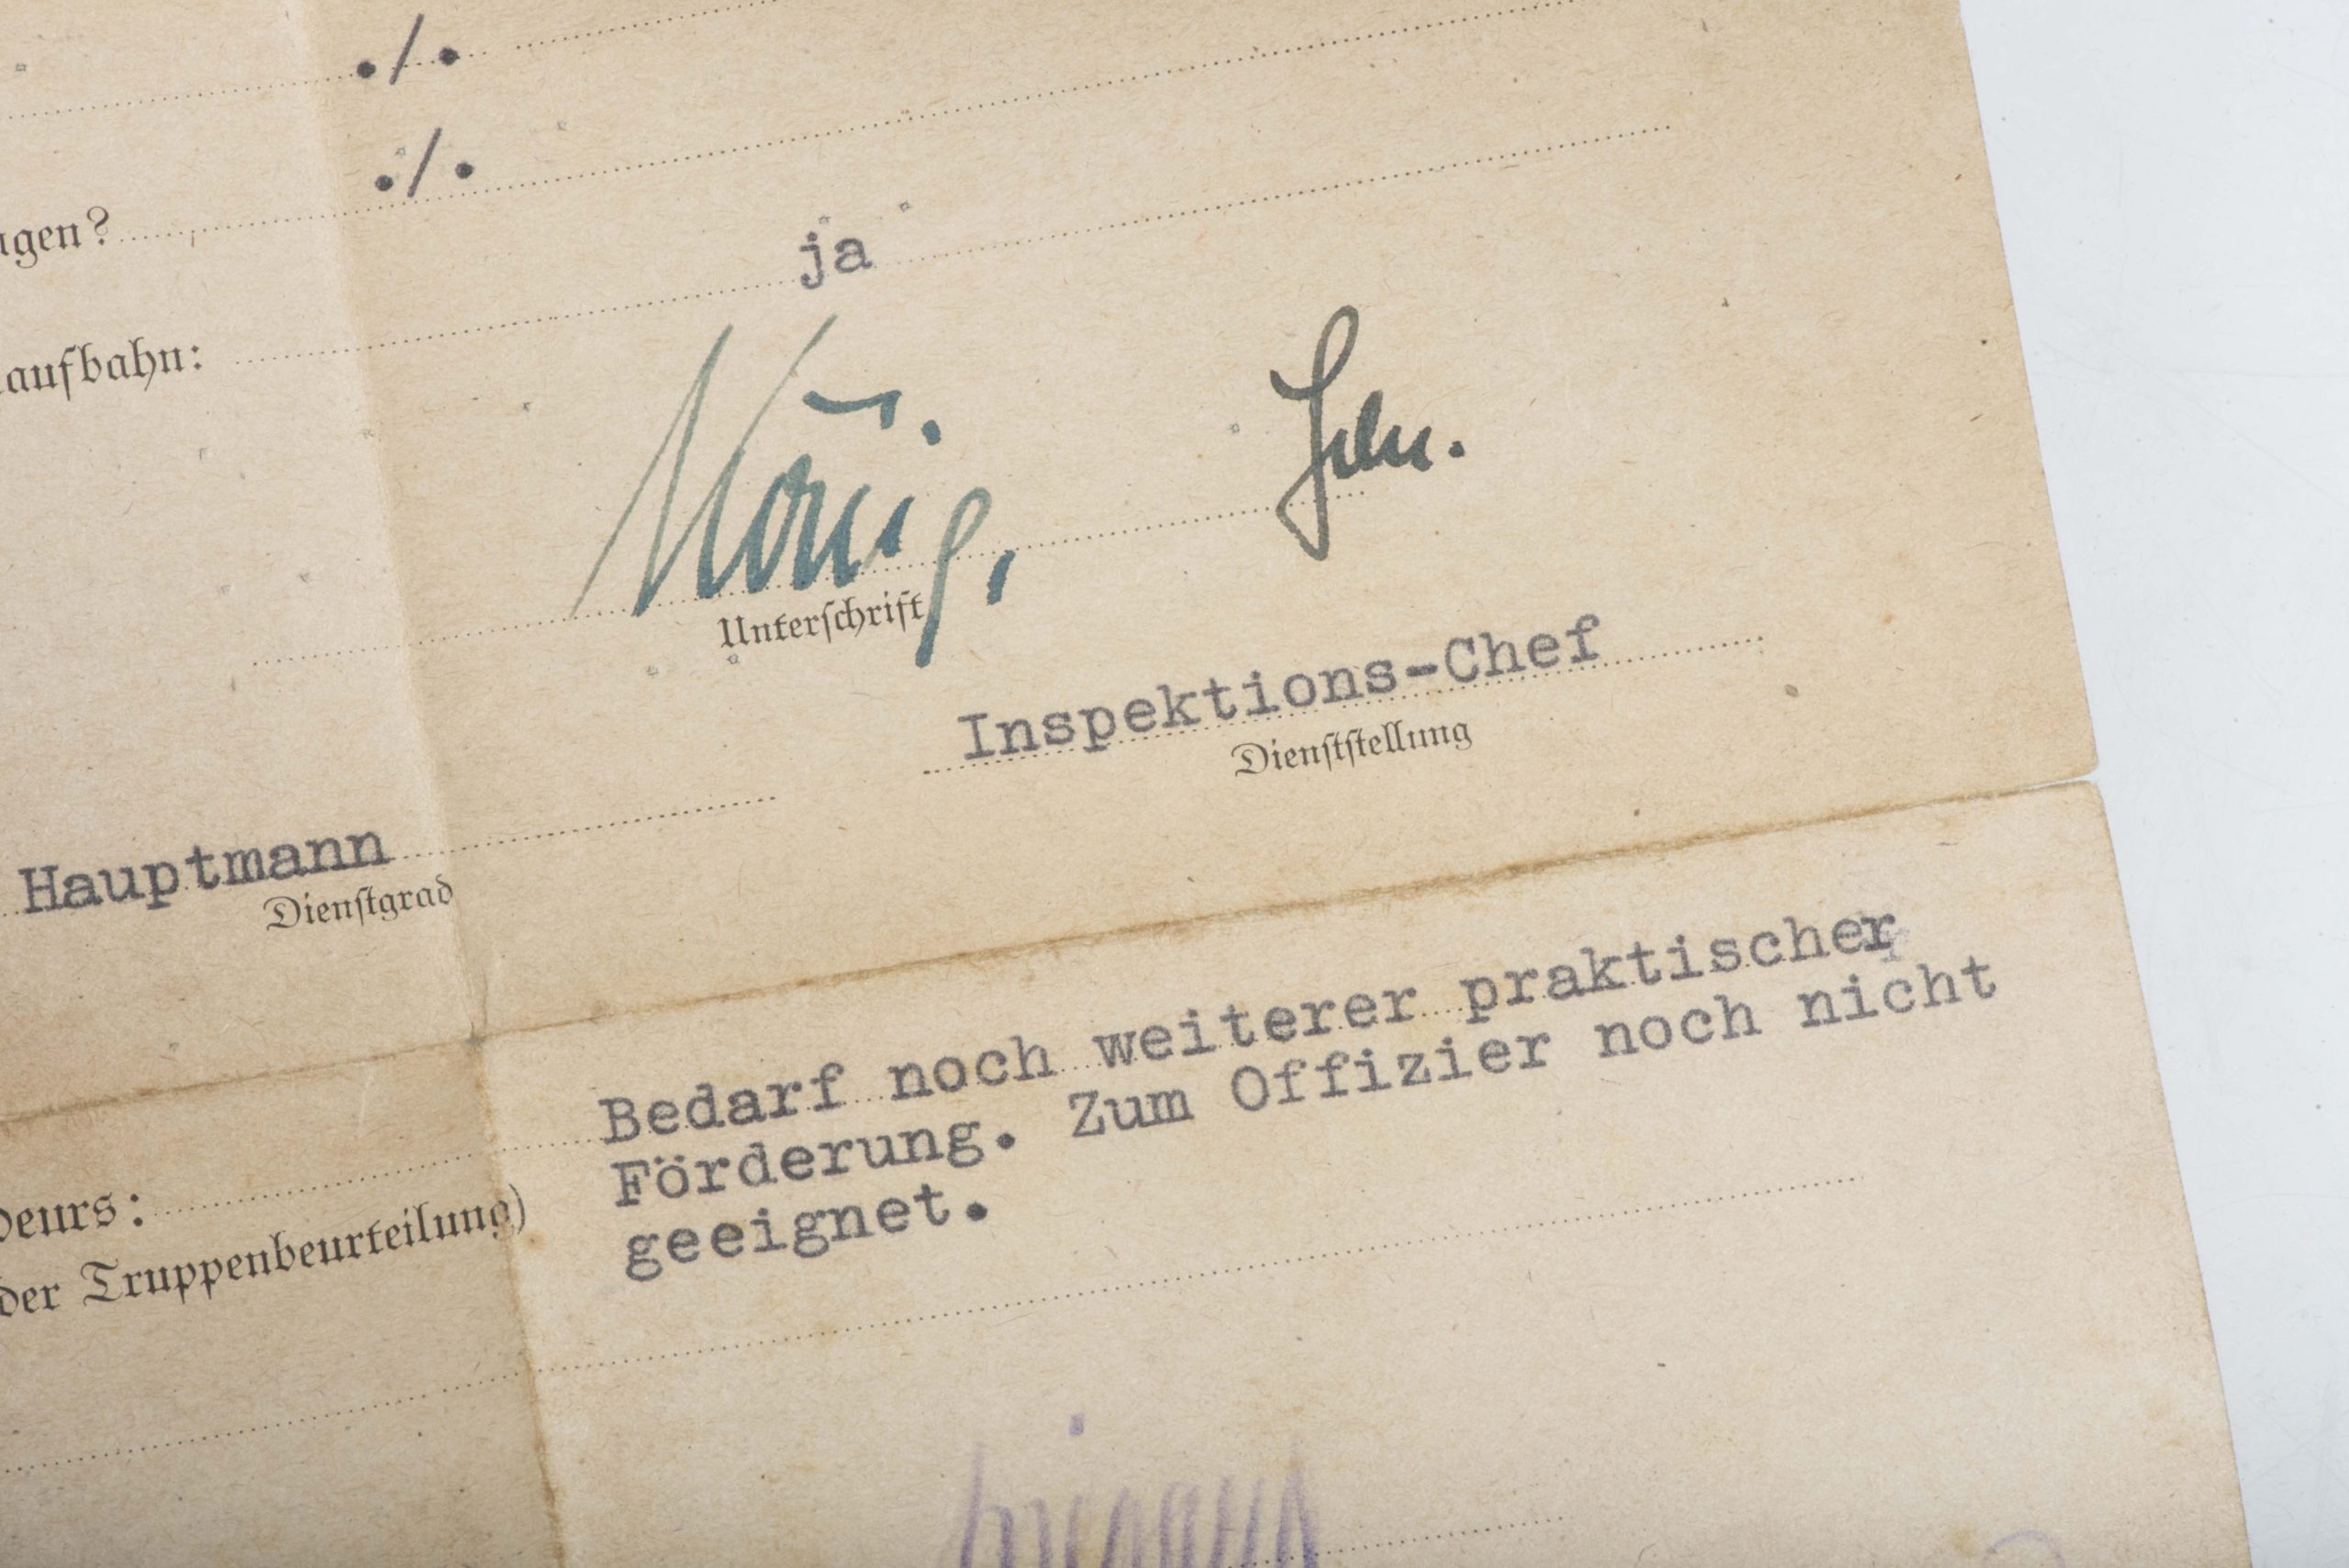 ./.
./.
ngen?
ja
aufbahn:
König.
Unterschrift
Inspektions-Chef
Dienststellung
Hauptmann
Dienstgrad
Bedarf noch weiterer praktischer
Förderung. Zum Offizier noch nicht
geeignet.
deurs:
der Truppenbeurteilung)